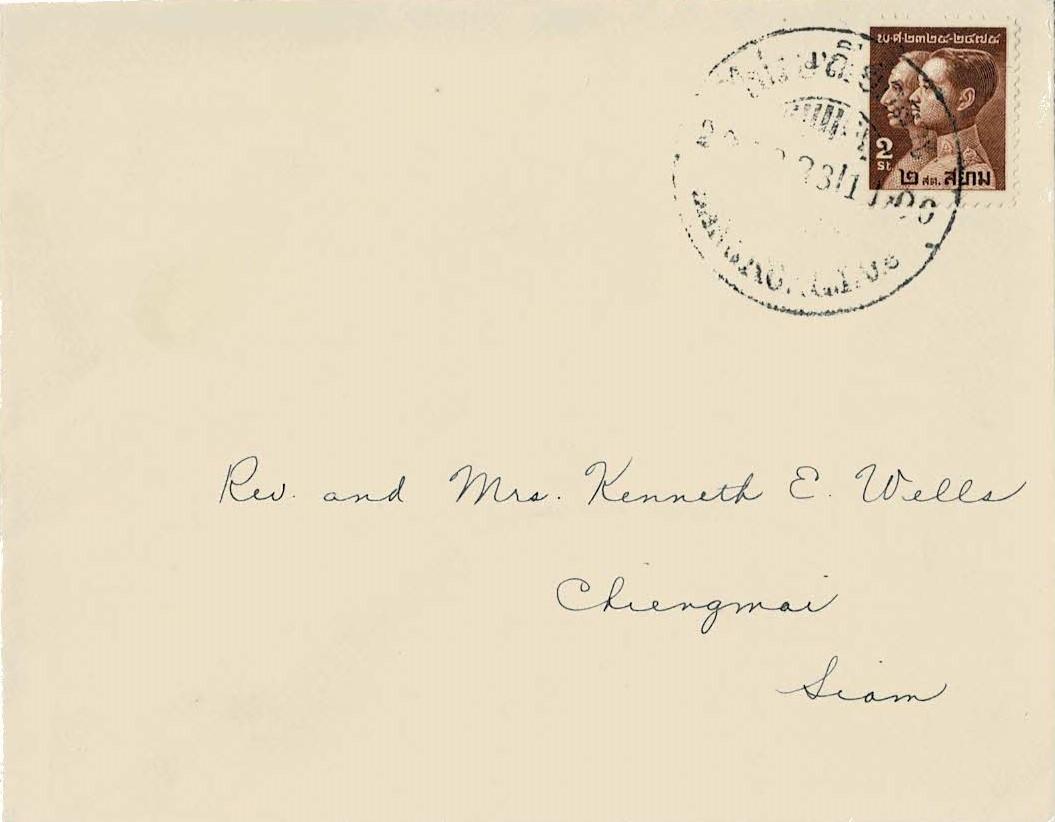 พ.ศ.๒๓๒๕-๒๔๗๕
2
St.
๒ สต. สยาม
Rev. and Mrs. Kenneth E. Wells
Chiengmai
Siam